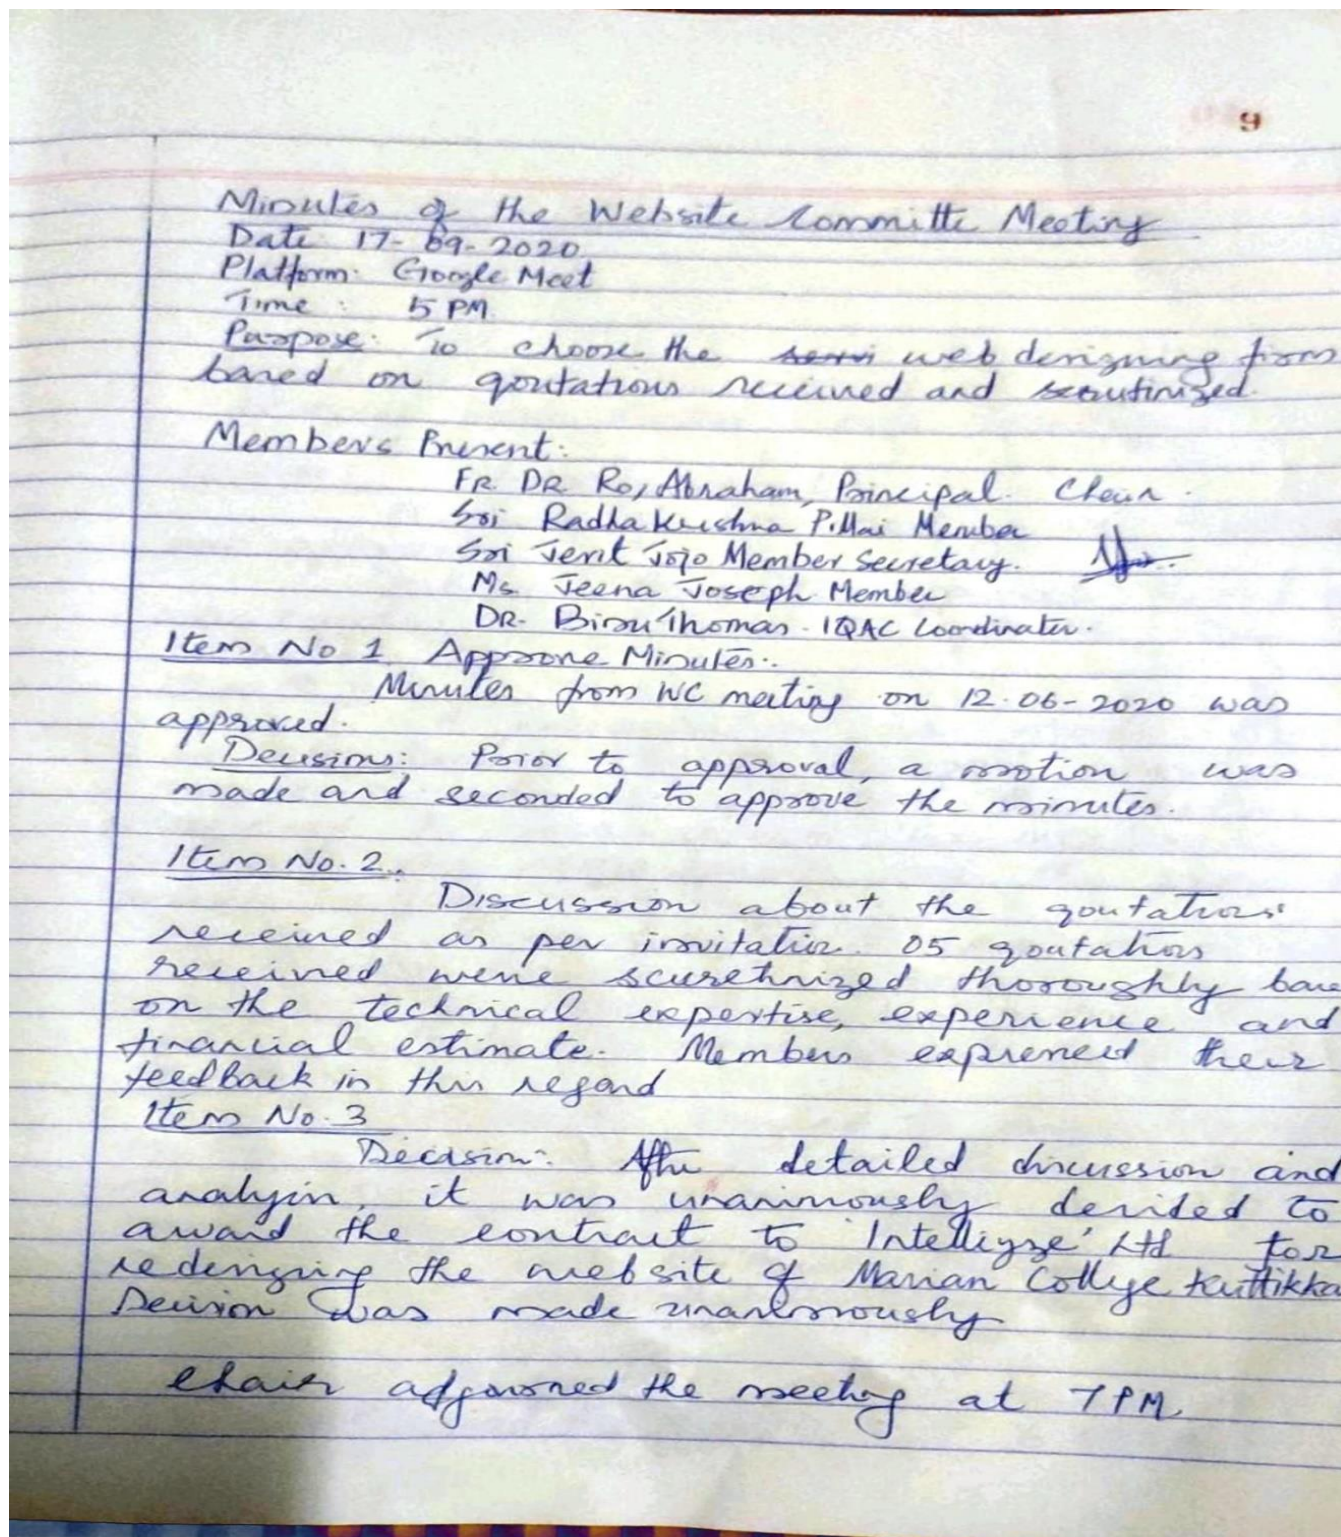 9
Minutes of the Website Committe Meeting
Date 17-09-2020
Platform: Google Meet
Time : 5 PM
Purpose: To choose the web designing from
based on qoutations received and scrutinized.
Members Present:
FR. DR Roy Abraham, Principal. Chair.
Sri Radhakrishna Pillai Member
Sri Jerit Jojo Member Secretary.
Ms. Jeena Joseph Member
DR. Binu Thomas - IQAC Coordinator.
Item No 1 Approve Minutes:
Minutes from WC meeting on 12.06-2020 was
approved.
Decisions: Prior to approval, a motion was
made and seconded to approve the minutes.
Item No. 2.
Discussion about the qoutations
received as per invitation. 05 qoutations
received were scurethnized thoroughly base
on the technical expertise, experience and
financial estimate. Members expressed their
feedback in this regard
Item No. 3
Decision: After detailed discussion and
analysis, it was unanimously decided to
award the contract to 'Intelligze' Ltd for
redesigning the website of Marian College Kuttikka
Decision was made unanimously
Chair adjourned the meeting at 7 PM